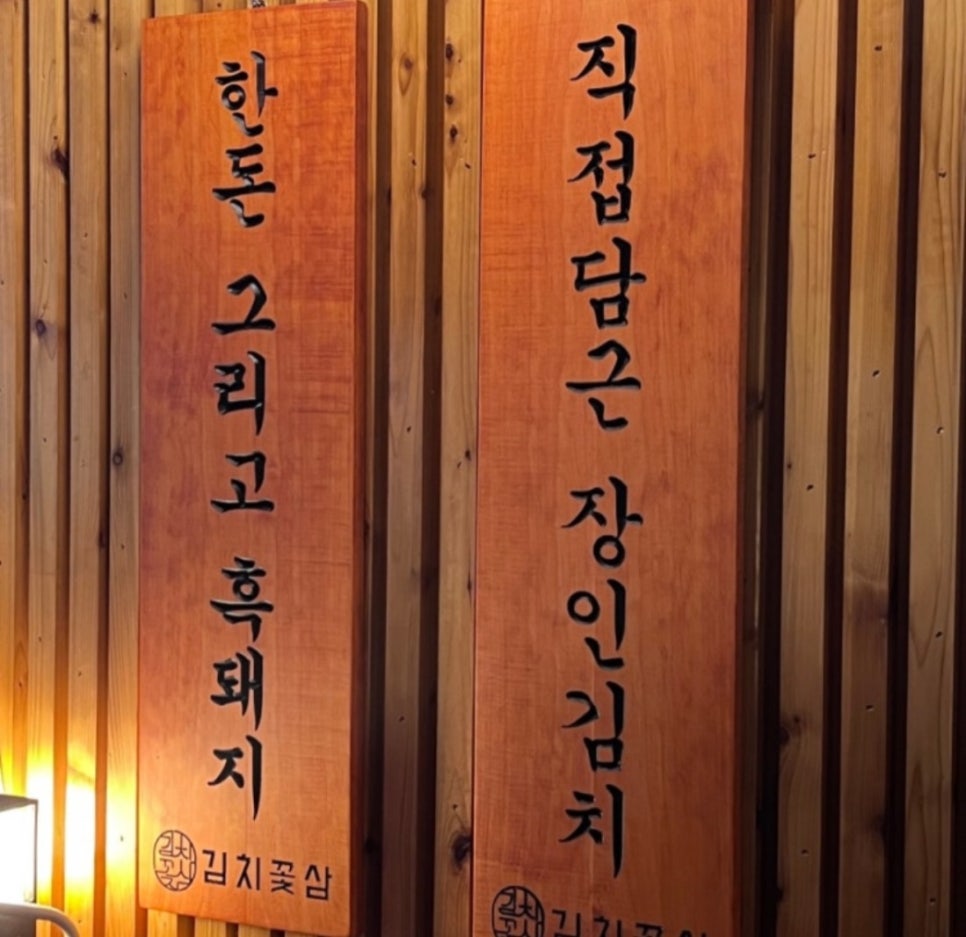 한돈 그리고 흑돼지
김치꽃삼
김치꽃삼
직접담근 장인김치
김치꽃삼
김치꽃삼